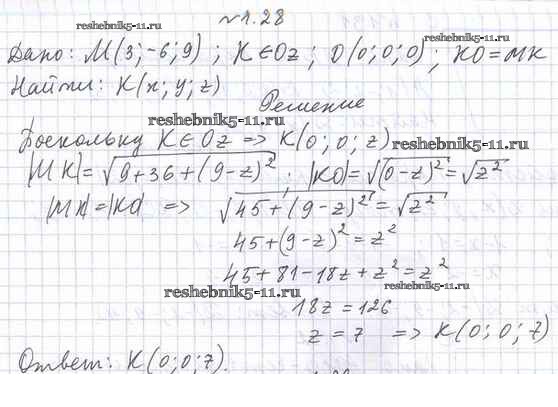 №1.28
reshebnik5-11.ru
Дано: M(3;-6;9) ; K∈Oz ; O(0;0;0) ; KO=MK
Найти: K(x;y;z)
Решение
reshebnik5-11.ru
Поскольку K∈Oz => K(0;0;z)
reshebnik5-11.ru
|MK|=√(9+36+(9-z)²) ; |KO|=√((0-z)²)=√(z²)
|MK|=|KO| => √(45+(9-z)²)=√(z²)
45+(9-z)²=z²
45+81-18z+z²=z²
reshebnik5-11.ru reshebnik5-11.ru
18z=126
z=7 => K(0;0;7)
Ответ: K(0;0;7).
reshebnik5-11.ru